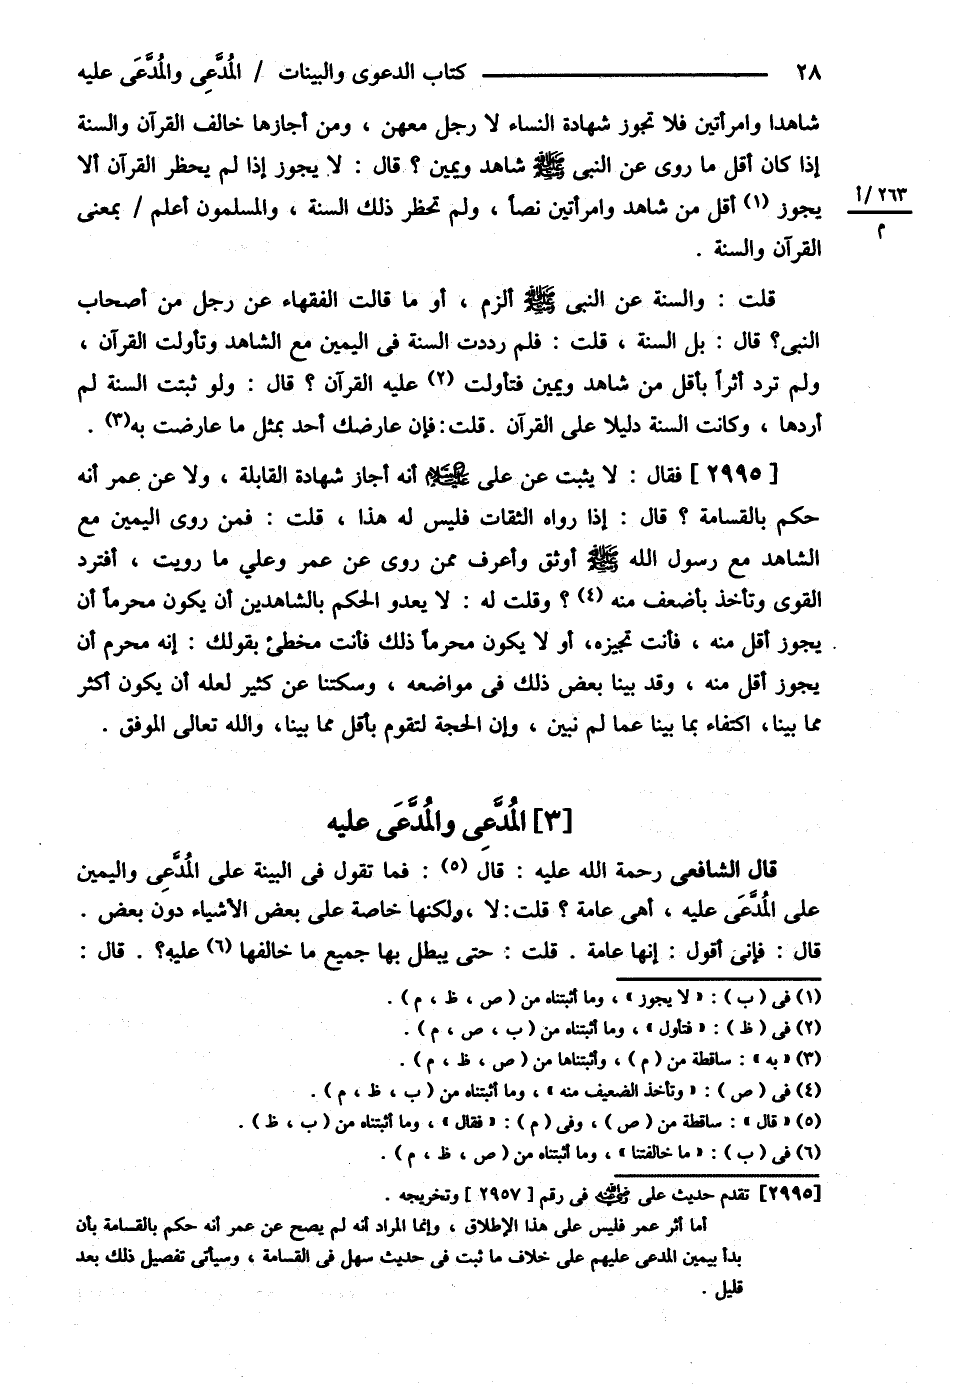 ٢٨ ــــــــــــــــ كتاب الدعوى والبينات / المُدَّعِى والمُدَّعَى عليه
شاهدا وامرأتين فلا تجوز شهادة النساء لا رجل معهن ، ومن أجازها خالف القرآن والسنة
إذا كان أقل ما روى عن النبى ﷺ شاهد ويمين ؟ قال : لا يجوز إذا لم يحظر القرآن ألا
يجوز (١) أقل من شاهد وامرأتين نصاً ، ولم تحظر ذلك السنة ، والمسلمون أعلم / بمعنى
٢٦٣/أ
م
القرآن والسنة .
قلت : والسنة عن النبى ﷺ ألزم ، أو ما قالت الفقهاء عن رجل من أصحاب
النبى؟ قال : بل السنة ، قلت : فلم رددت السنة فى اليمين مع الشاهد وتأولت القرآن ،
ولم ترد أثراً بأقل من شاهد ويمين فتأولت (٢) عليه القرآن ؟ قال : ولو ثبتت السنة لم
أردها ، وكانت السنة دليلا على القرآن .قلت:فإن عارضك أحد بمثل ما عارضت به(٣) .
[ ٢٩٩٥ ] فقال : لا يثبت عن على عليه السلام أنه أجاز شهادة القابلة ، ولا عن عمر أنه
حكم بالقسامة ؟ قال : إذا رواه الثقات فليس له هذا ، قلت : فمن روى اليمين مع
الشاهد مع رسول الله ﷺ أوثق وأعرف ممن روى عن عمر وعلي ما رويت ، أفترد
القوى وتأخذ بأضعف منه (٤) ؟ وقلت له : لا يعدو الحكم بالشاهدين أن يكون محرماً أن
يجوز أقل منه ، فأنت تجيزه، أو لا يكون محرماً ذلك فأنت مخطئ بقولك : إنه محرم أن
يجوز أقل منه ، وقد بينا بعض ذلك فى مواضعه ، وسكتنا عن كثير لعله أن يكون أكثر
مما بينا، اكتفاء بما بينا عما لم نبين ، وإن الحجة لتقوم بأقل مما بينا، والله تعالى الموفق .
[٣] المُدَّعِى والمُدَّعَى عليه
قال الشافعى رحمة الله عليه : قال (٥) : فما تقول فى البينة على المُدَّعِى واليمين
على المُدَّعَى عليه ، أهى عامة ؟ قلت:لا ،ولكنها خاصة على بعض الأشياء دون بعض .
قال : فإنى أقول : إنها عامة . قلت : حتى يبطل بها جميع ما خالفها (٦) عليه؟ . قال :
(١) فى ( ب ) : « لا يجوز » ، وما أثبتناه من ( ص ، ظ ، م ) .
(٢) فى ( ظ ) : « فتأول » ، وما أثبتناه من ( ب ، ص ، م ) .
(٣) « به » : ساقطة من ( م ) ، وأثبتناها من ( ص ، ظ ، م ) .
(٤) فى ( ص ) : « وتأخذ الضعيف منه » ، وما أثبتناه من ( ب ، ظ ، م ) .
(٥) « قال » : ساقطة من ( ص ) ، وفى ( م ) : « فقال » ، وما أثبتناه من ( ب ، ظ ) .
(٦) فى ( ب ) : « ما خالفتنا » ، وما أثبتناه من ( ص ، ظ ، م ) .
[٢٩٩٥] تقدم حديث على رضي الله عنه فى رقم [ ٢٩٥٧ ] وتخريجه .
أما أثر عمر فليس على هذا الإطلاق ، وإنما المراد أنه لم يصح عن عمر أنه حكم بالقسامة بأن
بدأ بيمين المدعى عليهم على خلاف ما ثبت فى حديث سهل فى القسامة ، وسيأتى تفصيل ذلك بعد
قليل .